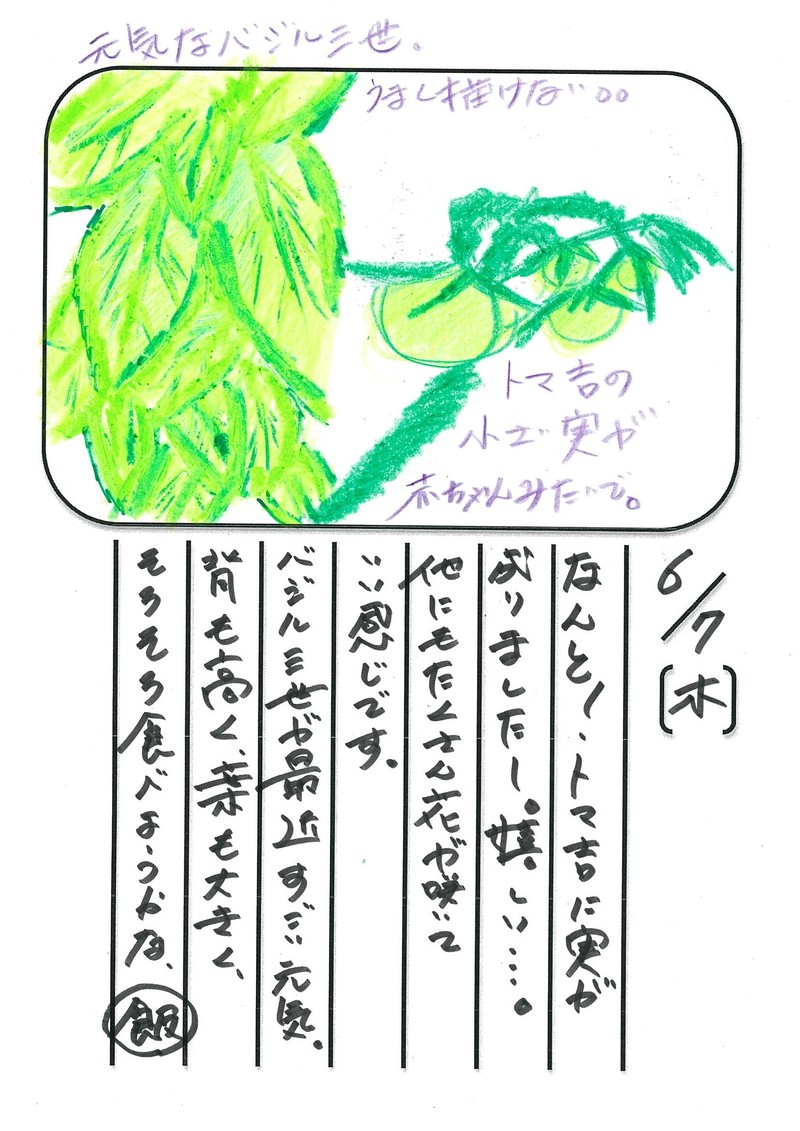 元気なバジル三世。
うまく描けない。。
トマ吉の
小さい実が
赤ちゃんみたいで。
6/7(木)
なんと!トマ吉に実が
なりましたー。嬉しい…。
他にもたくさん花が咲いて
いい感じです。
バジル三世が最近すごい元気。
背も高く、葉も大きく、
そろそろ食べようかな、
飯